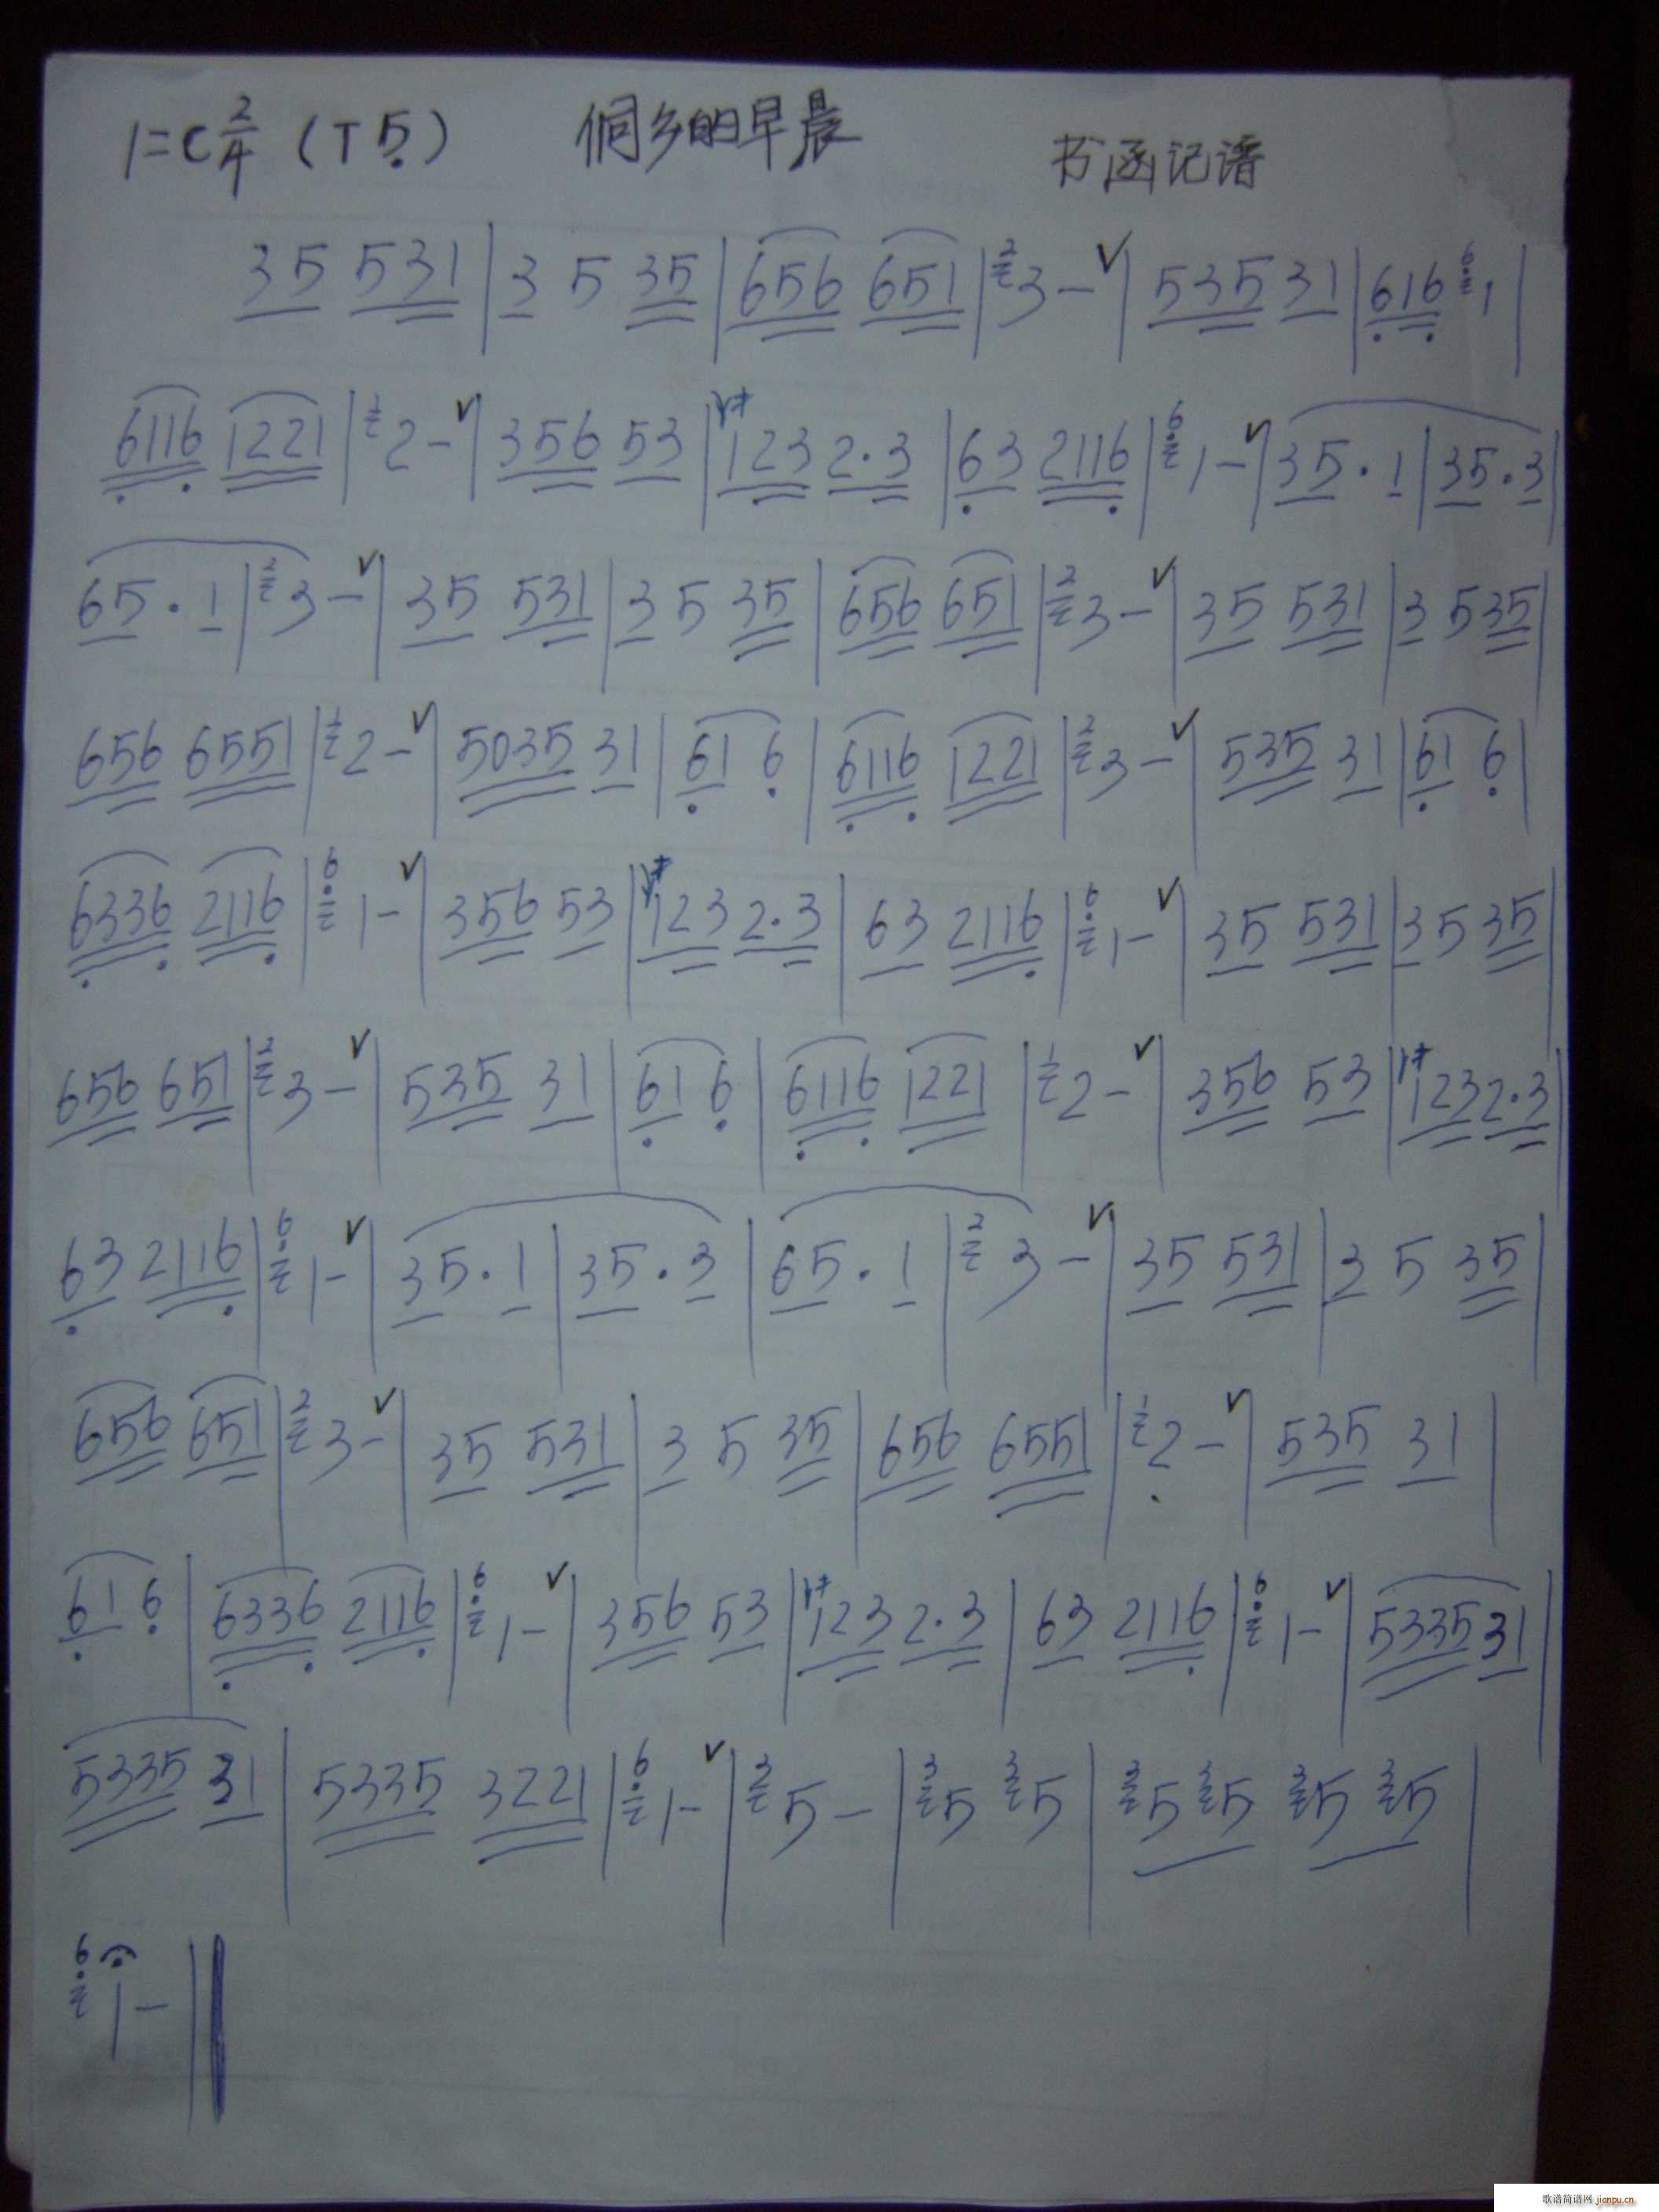 1=C 2/4 (T 5̣) 侗乡的早晨 书函记谱
35 531 | 3 5 35 | 656 651 | ²3 - ∨ | 535 31 | 616 ⁶1 |
6116 1221 | ¹2 - ∨ | 356 53 | 123 2·3 | 63 2116 | ⁶1 - ∨ | 35·1 | 35·3 |
65·1 | ²3 - ∨ | 35 531 | 3 5 35 | 656 651 | ²3 - ∨ | 35 531 | 3 5 35 |
656 6551 | ¹2 - ∨ | 5035 31 | 61 6 | 6116 1221 | ²3 - ∨ | 535 31 | 61 6 |
6336 2116 | ⁶1 - ∨ | 356 53 | 123 2·3 | 63 2116 | ⁶1 - ∨ | 35 531 | 3 5 35 |
656 651 | ²3 - ∨ | 535 31 | 61 6 | 6116 1221 | ¹2 - ∨ | 356 53 | 123 2·3 |
63 2116 | ⁶1 - ∨ | 35·1 | 35·3 | 65·1 | ²3 - ∨ | 35 531 | 3 5 35 |
656 651 | ²3 - ∨ | 35 531 | 3 5 35 | 656 6551 | ¹2 - ∨ | 535 31 |
61 6 | 6336 2116 | ⁶1 - ∨ | 356 53 | 123 2·3 | 63 2116 | ⁶1 - ∨ | 5335 31 |
5335 31 | 5335 3221 | ⁶1 - ∨ | ³5 - | ³5 ³5 | ³5 ³5 ³5 ³5 |
⁶1 - ‖
歌谱简谱网 jianpu.cn